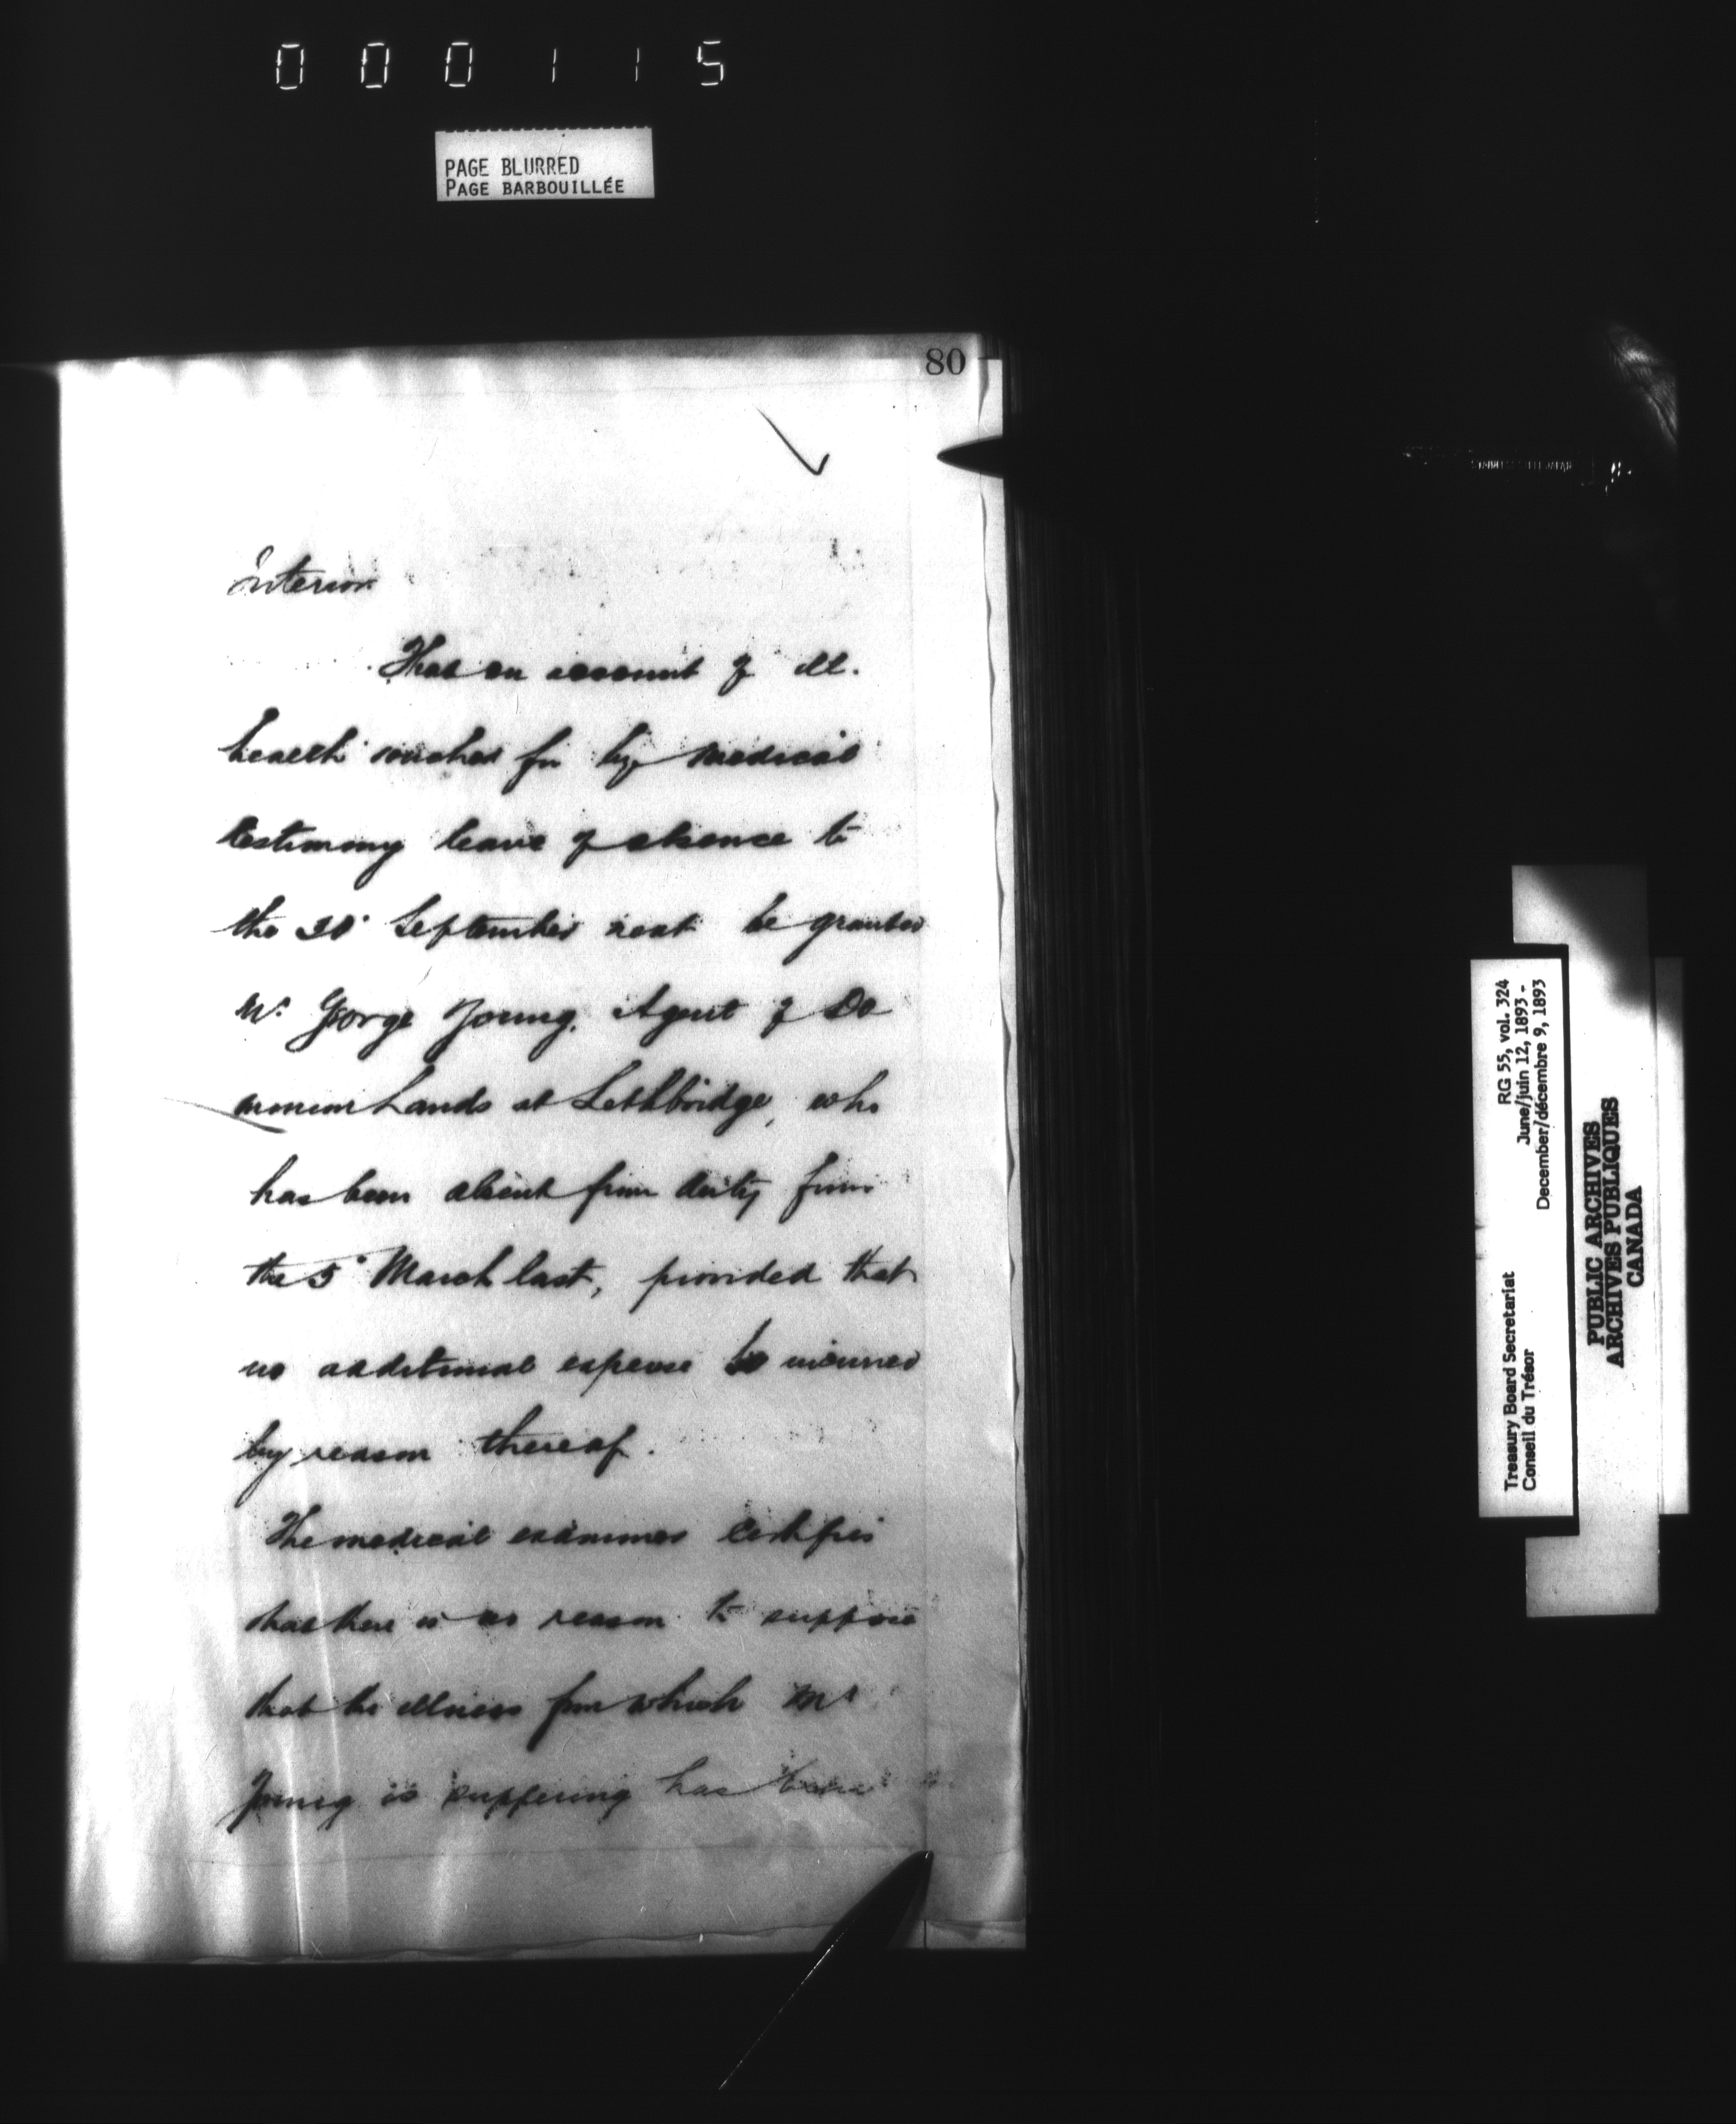 000115
PAGE BLURRED
PAGE BARBOUILLÉE
80
Interior
That on account of ill
health vouched for by medical
testimony leave of absence to
the 30 September next be granted
Mr. George Young, Agent of Do
minion Lands at Lethbridge, who
has been absent from duty from
the 5 March last, provided that
no additional expense be incurred
by reason thereof.
The medical examiner certifies
that there is no reason to suppose
that the illness from which Mr
Young is suffering has been
RG 55, vol. 324
June/juin 12, 1893 -
December/décembre 9, 1893
Treasury Board Secretariat
Conseil du Trésor
PUBLIC ARCHIVES
ARCHIVES PUBLIQUES
CANADA